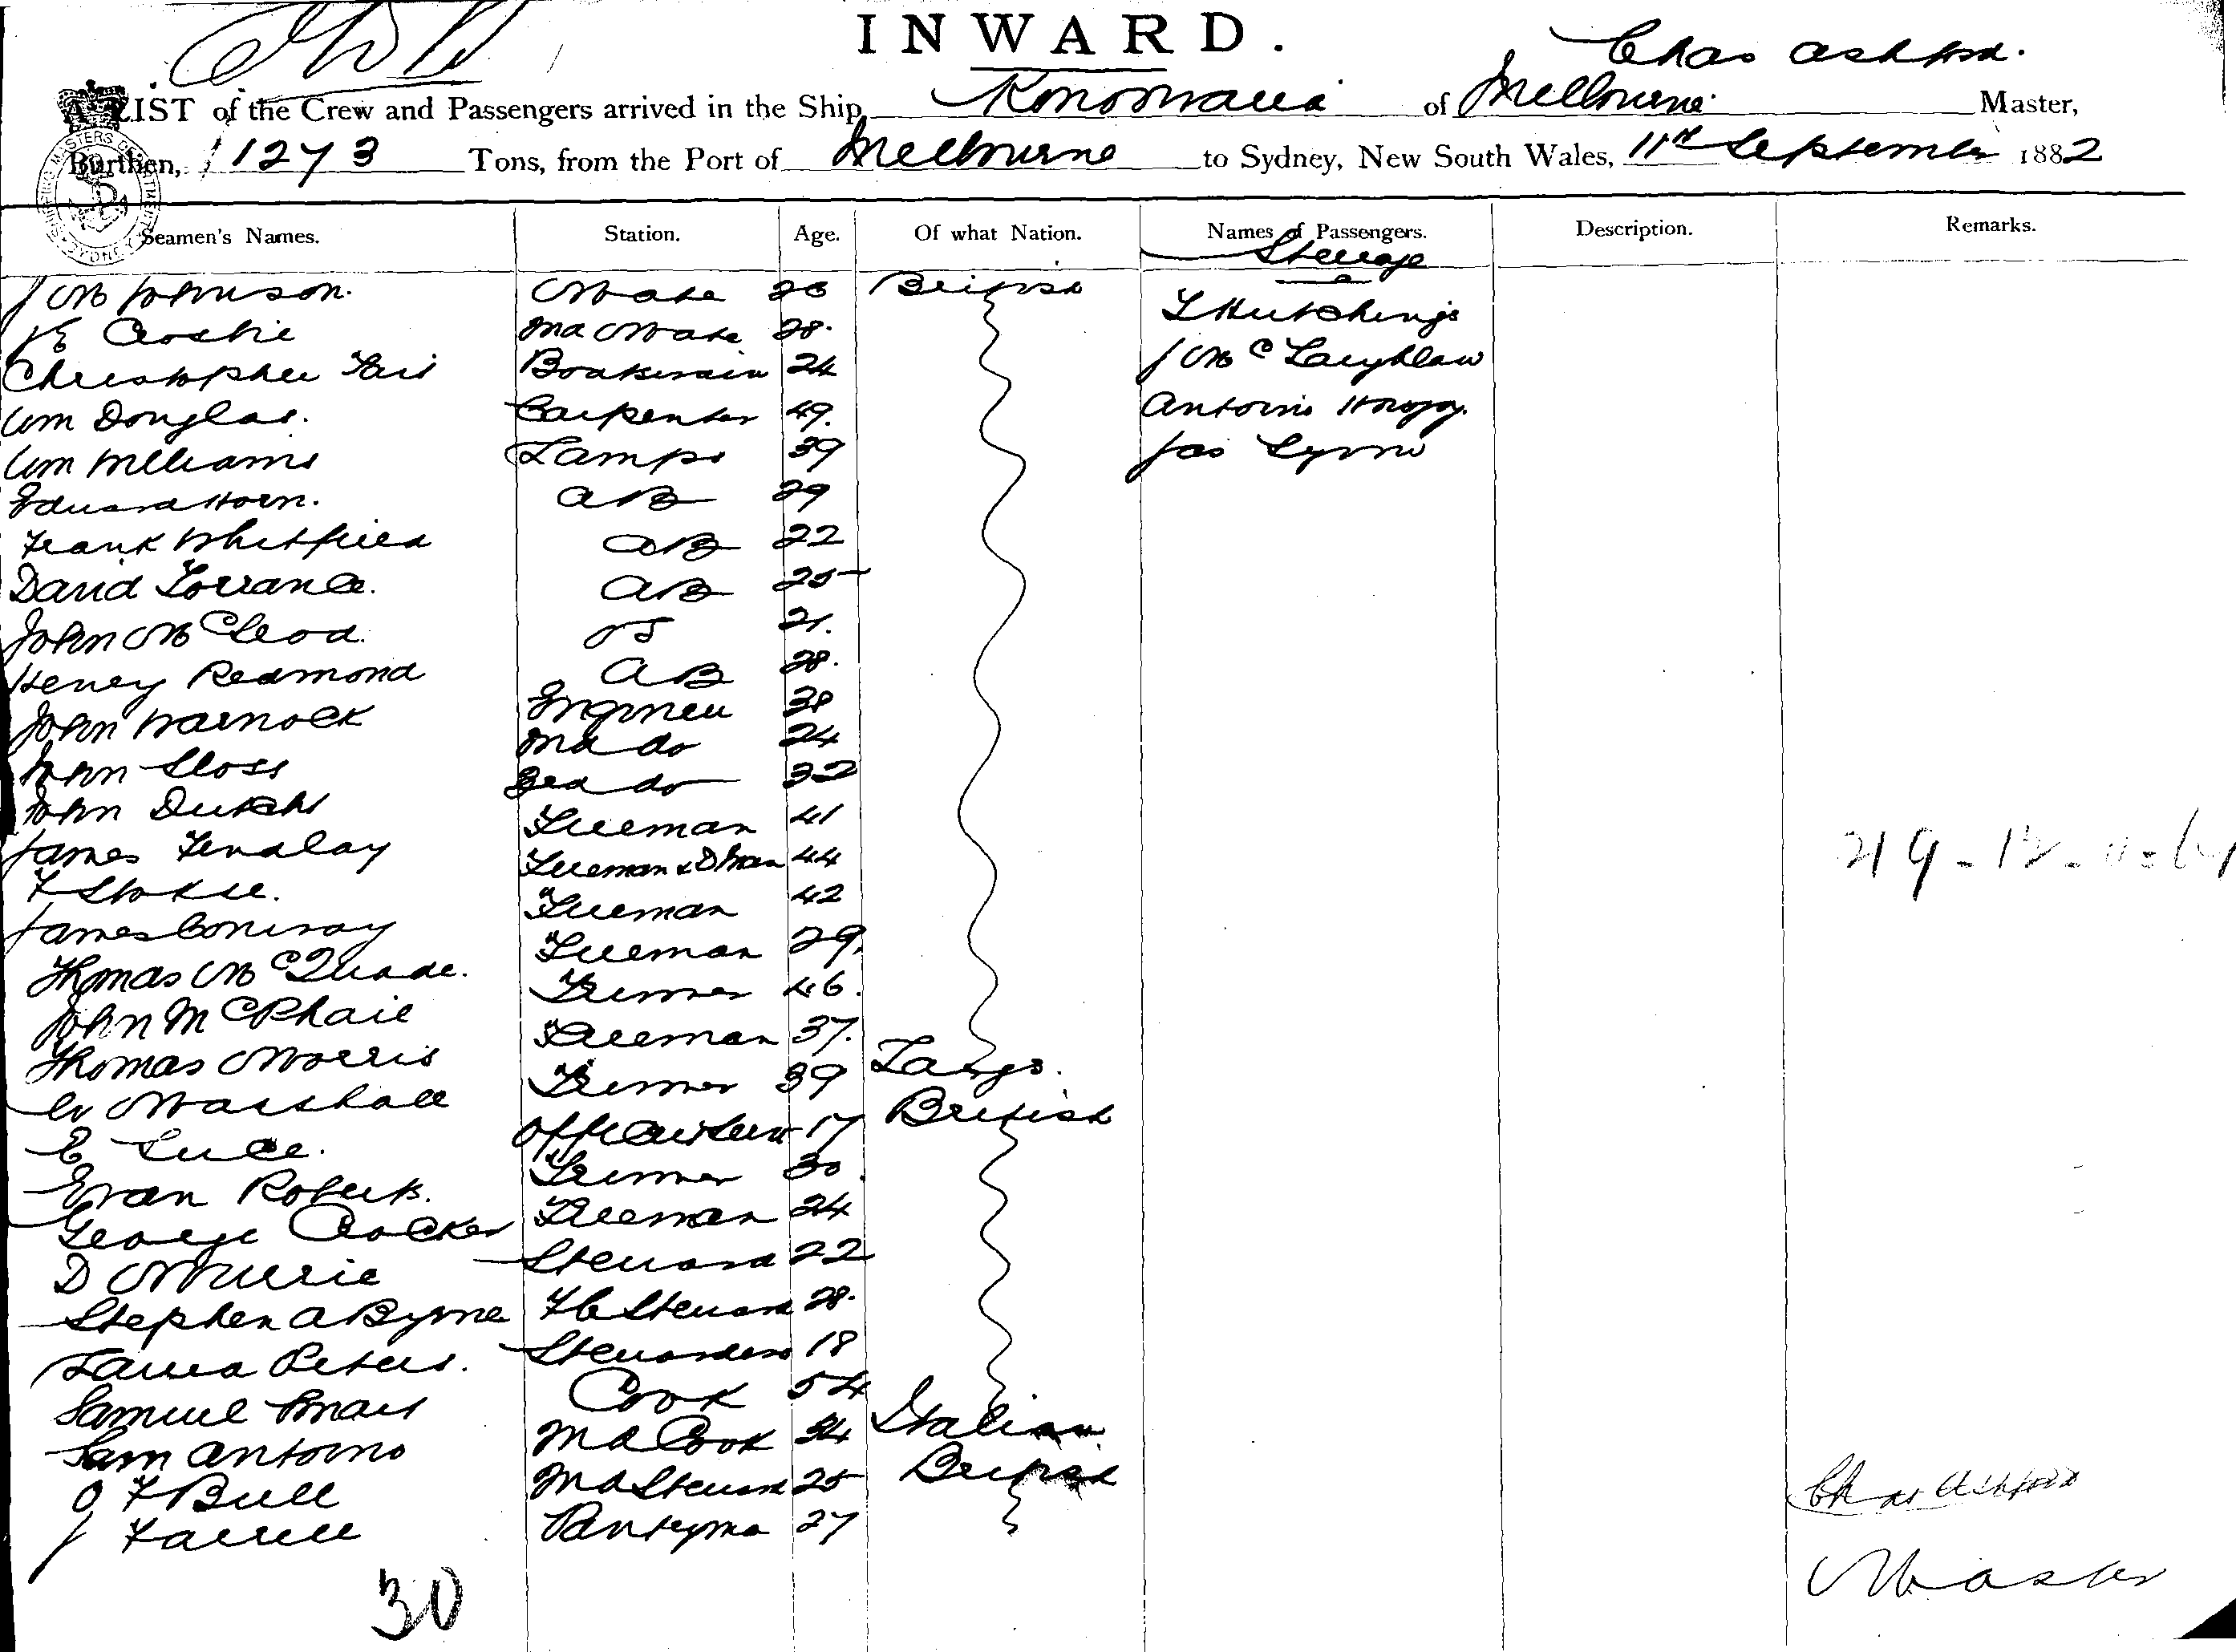 INWARD.
Chas Ashford.
A LIST of the Crew and Passengers arrived in the Ship Konoowarra of Melbourne Master,
Burthen, 1273 Tons, from the Port of Melbourne to Sydney, New South Wales, 11th September 1882
Seamen's Names. Station. Age. Of what Nation. Names of Passengers. Description. Remarks.
Steerage
J M Johnson. Mate British
2nd Mate 28. L Hutchings
Christopher Boatswain 24 J McLaughlan
Wm Douglas. Carpenter 49. Antonio
Wm Williams Lamps 39 Jas Lynn
Edward Horn. AB 29
Frank Whitfield AB 22
David Torrance. AB 25
John McLeod. OS 21.
Henry Redmond AB 28.
John Warnock Engineer 38
John Sloss 2nd do 24
John 3rd do 32
James Findlay Fireman 41
F Stokes. Fireman & 44
James Conway Fireman 42
Thomas McQuade. Fireman 29.
John McPhail Trimmer 46.
Thomas Morris Fireman 37.
W Marshall Trimmer 39
E Luce. 17 British
Evan Roberts. Trimmer 30
George Crocker Fireman 24
D Murrie Steward 22
Stephen A Byrne Steward 28.
Laura Peters. Stewardess 18
Samuel Cook 54
Sam Antonio 2nd Cook 34 Italian
O F Bull 2nd Steward 25 British
J Farrell Pantryman 27
Chas Ashford
Master
30